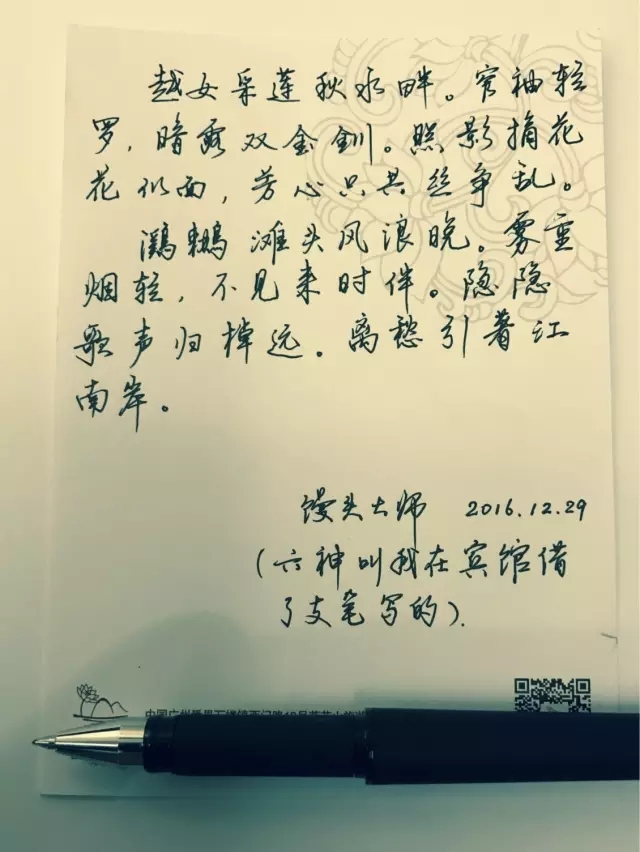 越女采莲秋水畔。窄袖轻
罗，暗露双金钏。照影摘花
花似面，芳心只共丝争乱。
鸂鶒滩头风浪晚。雾重
烟轻，不见来时伴。隐隐
歌声归棹远。离愁引著江
南岸。
馒头大师 2016.12.29
(六神叫我在宾馆借
了支笔写的).
中国广州